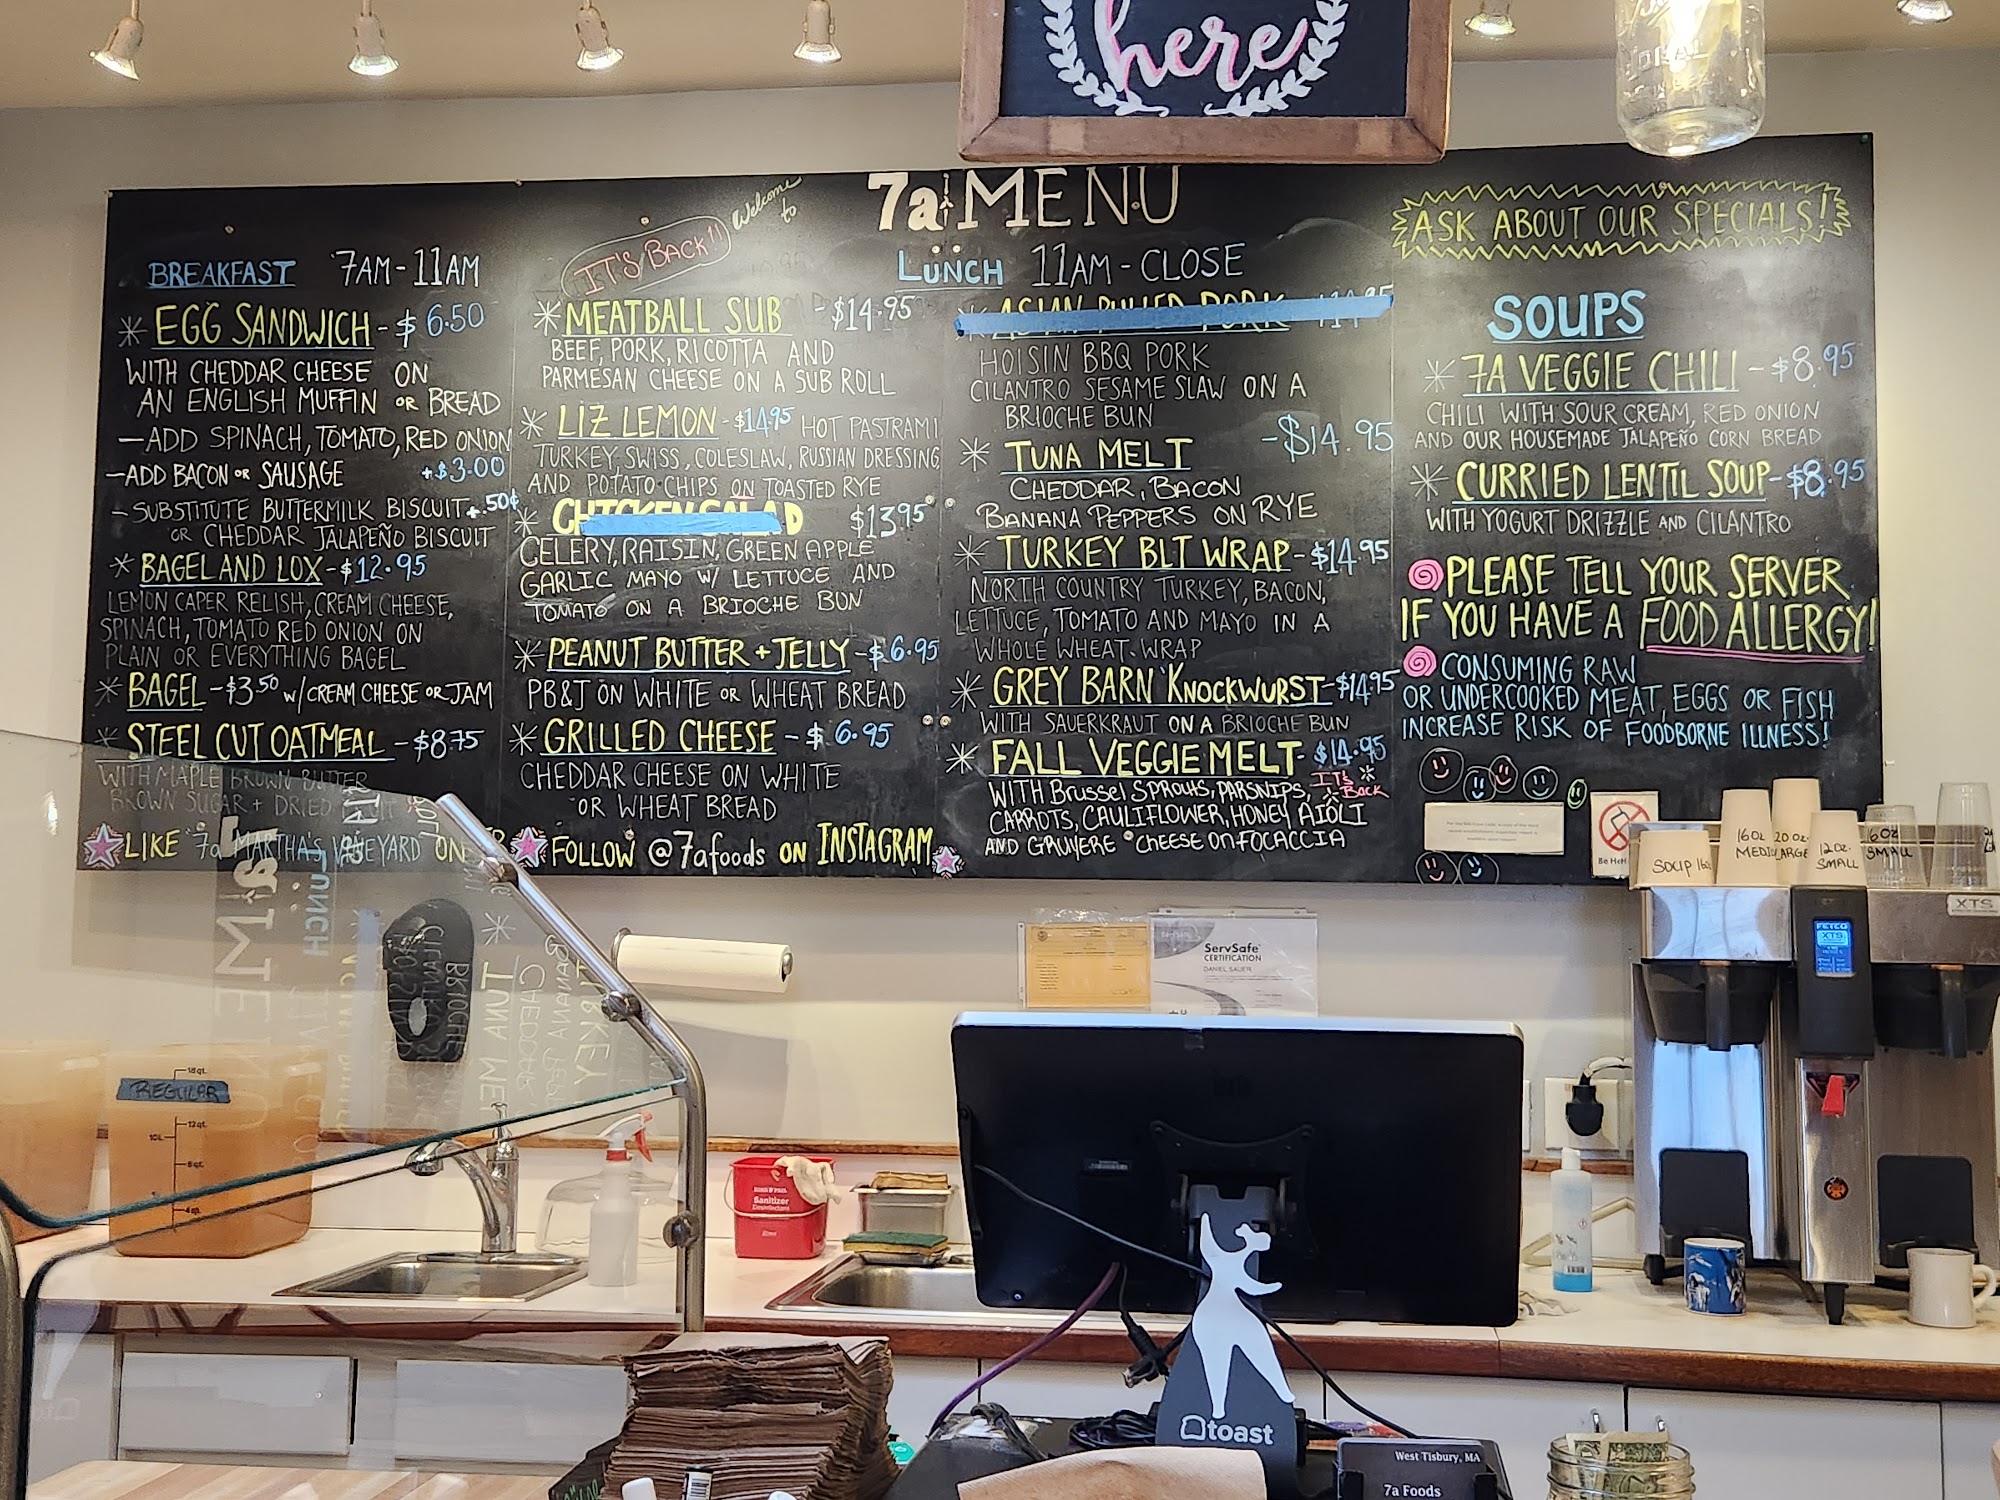 here
Welcome
to
7a MENU
IT'S BACK!!
ASK ABOUT OUR SPECIALS!
BREAKFAST 7AM - 11AM
* EGG SANDWICH - $6.50
WITH CHEDDAR CHEESE ON
AN ENGLISH MUFFIN OR BREAD
- ADD SPINACH, TOMATO, RED ONION
- ADD BACON OR SAUSAGE +$3.00
- SUBSTITUTE BUTTERMILK BISCUIT +.50¢
OR CHEDDAR JALAPEÑO BISCUIT
* BAGEL AND LOX - $12.95
LEMON CAPER RELISH, CREAM CHEESE,
SPINACH, TOMATO RED ONION ON
PLAIN OR EVERYTHING BAGEL
* BAGEL - $3.50 W/ CREAM CHEESE OR JAM
* STEEL CUT OATMEAL - $8.75
WITH MAPLE BROWN BUTTER
BROWN SUGAR + DRIED
LIKE 7a MARTHA'S VINEYARD ON
* MEATBALL SUB - $14.95
BEEF, PORK, RICOTTA AND
PARMESAN CHEESE ON A SUB ROLL
* LIZ LEMON - $14.95 HOT PASTRAMI
TURKEY, SWISS, COLESLAW, RUSSIAN DRESSING
AND POTATO CHIPS ON TOASTED RYE
* CHICKEN SALAD $13.95
CELERY, RAISIN, GREEN APPLE
GARLIC MAYO W/ LETTUCE AND
TOMATO ON A BRIOCHE BUN
* PEANUT BUTTER + JELLY - $6.95
PB&J ON WHITE OR WHEAT BREAD
* GRILLED CHEESE - $6.95
CHEDDAR CHEESE ON WHITE
OR WHEAT BREAD
FOLLOW @7afoods ON INSTAGRAM
LUNCH 11AM - CLOSE
* ASIAN PULLED PORK $14.95
HOISIN BBQ PORK
CILANTRO SESAME SLAW ON A
BRIOCHE BUN
* TUNA MELT - $14.95
CHEDDAR, BACON
BANANA PEPPERS ON RYE
* TURKEY BLT WRAP - $14.95
NORTH COUNTRY TURKEY, BACON,
LETTUCE, TOMATO AND MAYO IN A
WHOLE WHEAT WRAP
* GREY BARN KNOCKWURST - $14.95
WITH SAUERKRAUT ON A BRIOCHE BUN
* FALL VEGGIE MELT - $14.95
IT'S BACK
WITH BRUSSEL SPROUTS, PARSNIPS,
CARROTS, CAULIFLOWER, HONEY AIOLI
AND GRUYERE CHEESE ON FOCACCIA
SOUPS
* 7A VEGGIE CHILI - $8.95
CHILI WITH SOUR CREAM, RED ONION
AND OUR HOUSEMADE JALAPEÑO CORN BREAD
* CURRIED LENTIL SOUP - $8.95
WITH YOGURT DRIZZLE AND CILANTRO
PLEASE TELL YOUR SERVER
IF YOU HAVE A FOOD ALLERGY!
CONSUMING RAW
OR UNDERCOOKED MEAT, EGGS OR FISH
INCREASE RISK OF FOODBORNE ILLNESS!
SOUP 16oz
16oz MEDIUM
20oz LARGE
12oz. SMALL
16oz SMALL
XTS
FETCO
XTS
ServSafe
CERTIFICATION
DANIEL SAUER
REGULAR
18qt.
12qt.
10L
8qt.
4qt.
Sanitizer
toast
West Tisbury, MA
7a Foods